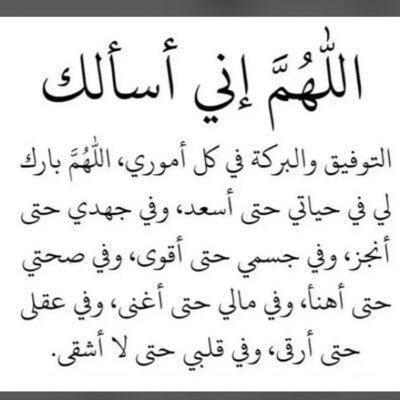 اللّٰهُمَّ إني أسألك
التوفيق والبركة في كل أموري، اللّٰهُمَّ بارك
لي في حياتي حتى أسعد، وفي جهدي حتى
أنجز، وفي جسمي حتى أقوى، وفي صحتي
حتى أهنأ، وفي مالي حتى أغنى، وفي عقلى
حتى أرقى، وفي قلبي حتى لا أشقى.